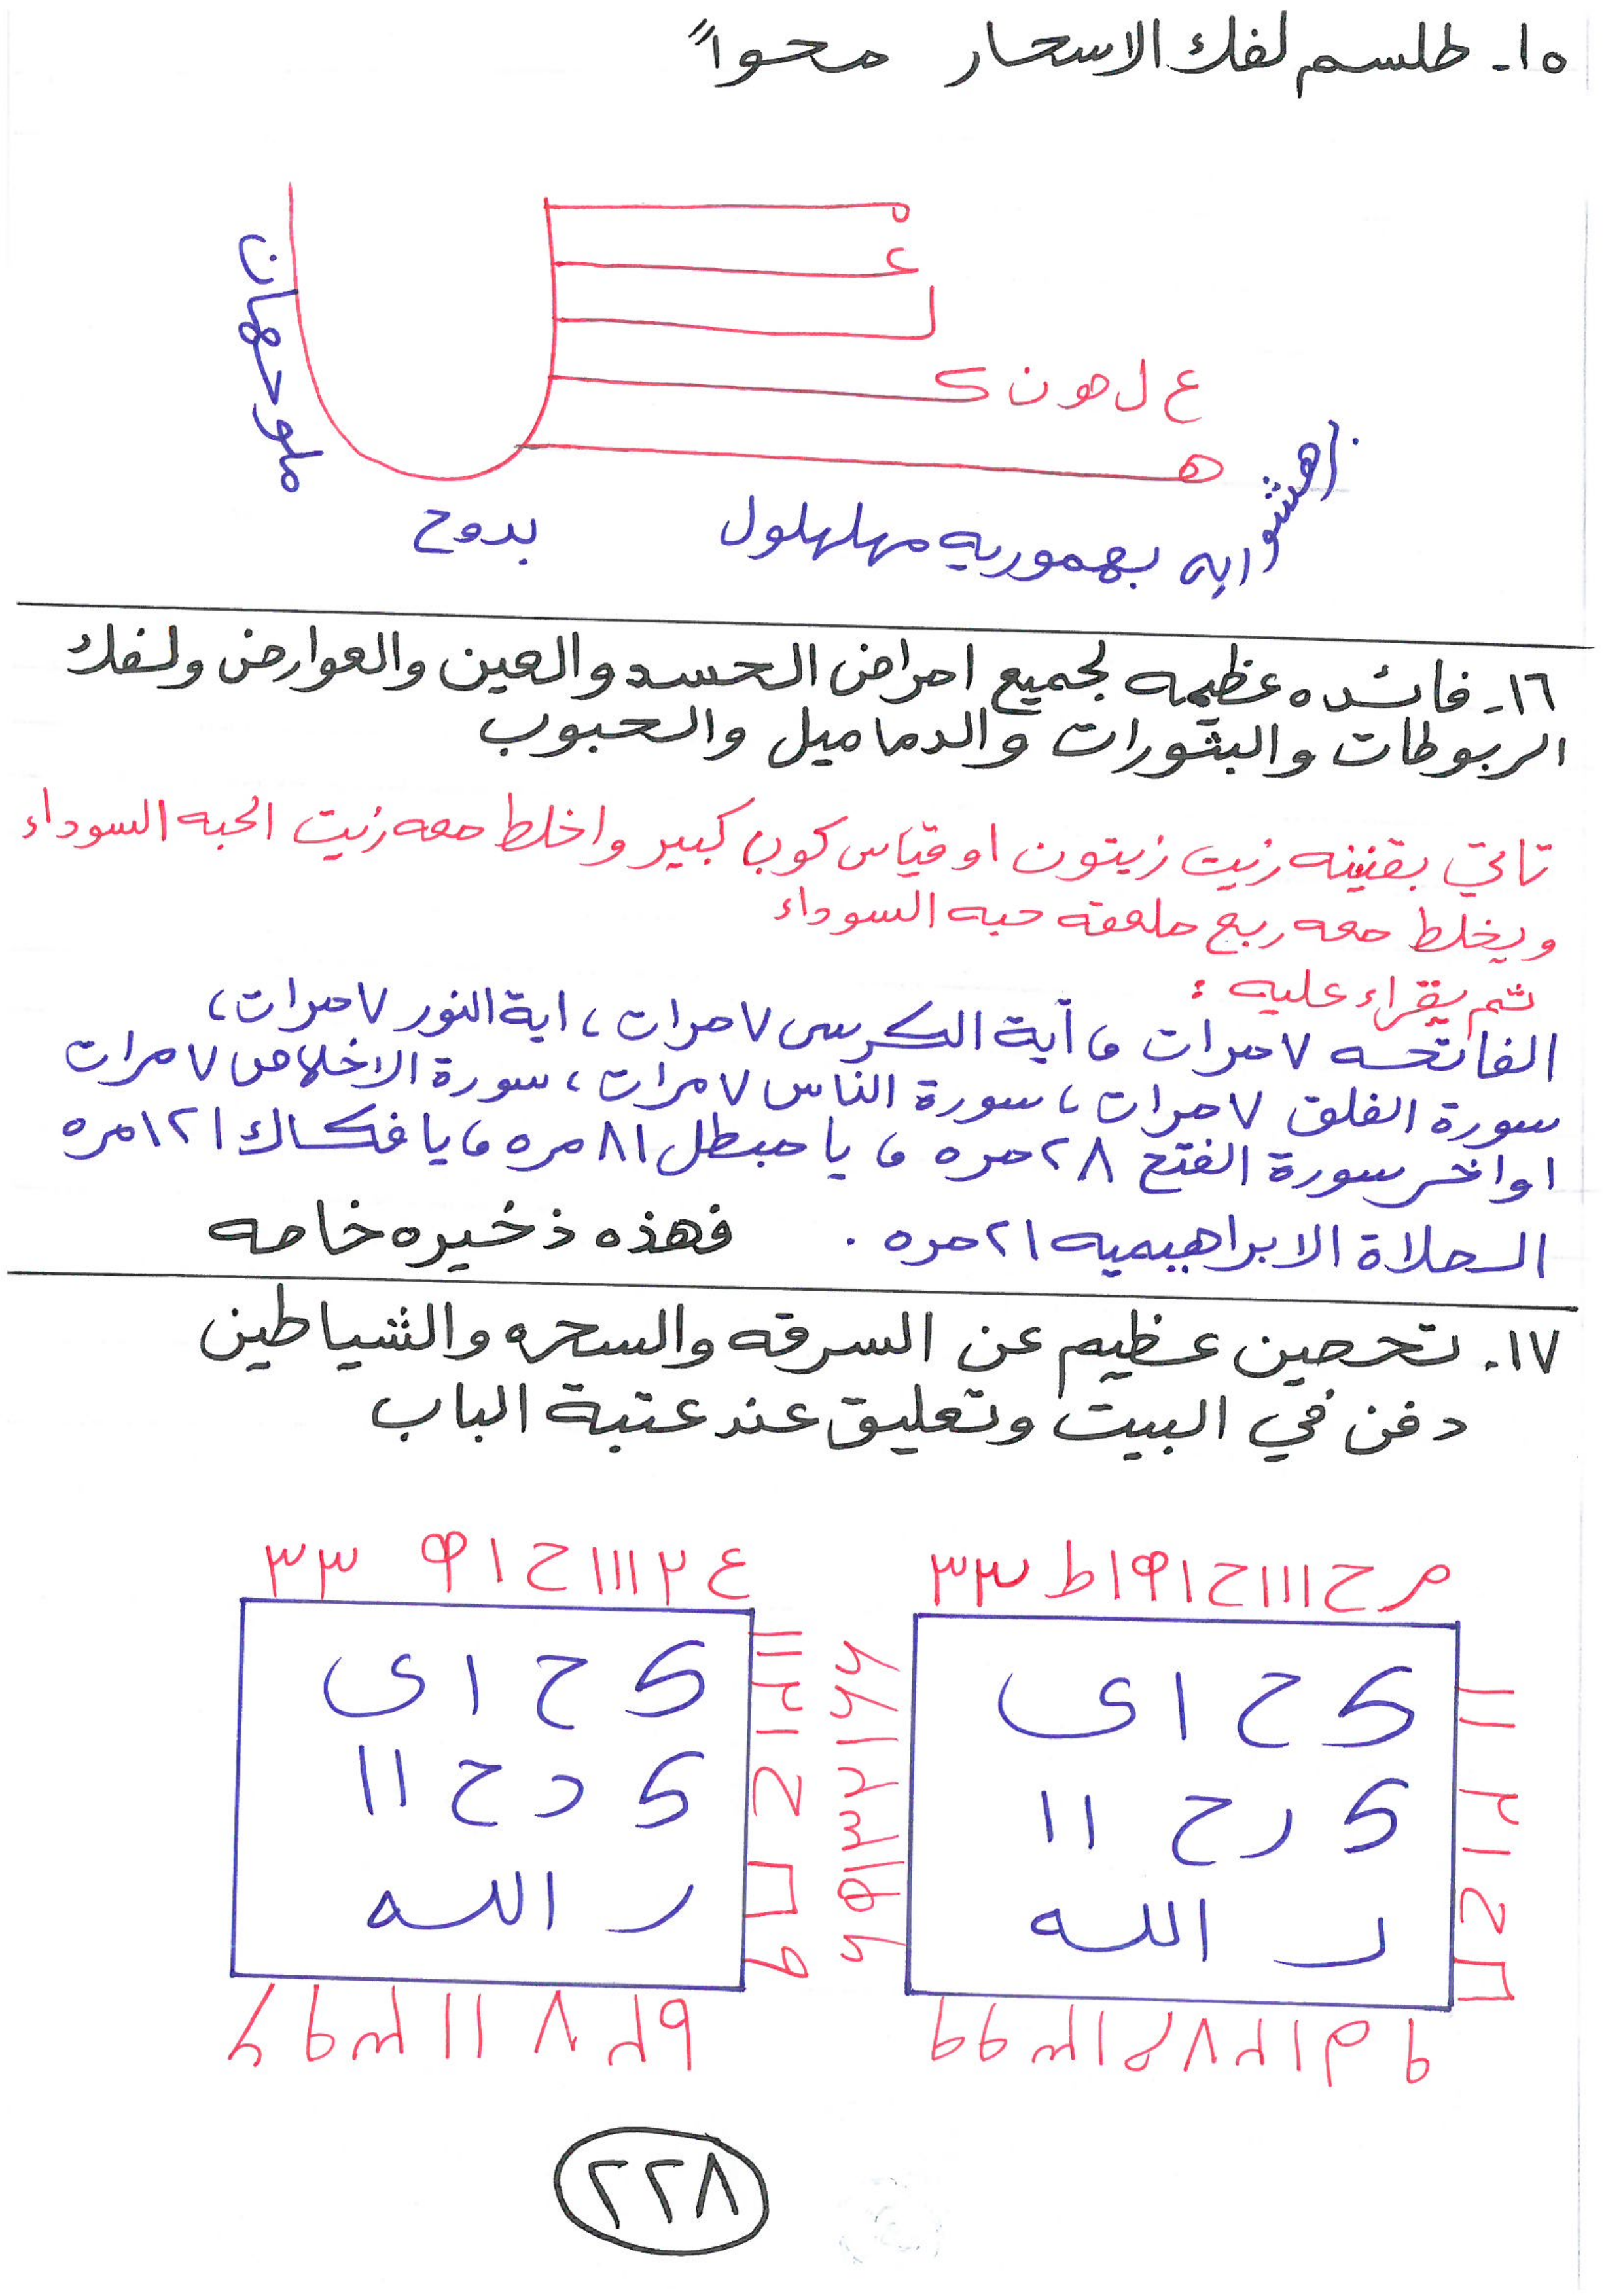 ١٥- طلسم لفك الاسحار محواً
ه
ع
ل
ع ل هـ و ن ك
هـ
ملوحهان
بدوح
ايه بهموريه مهلهلول
١٦- فائده عظيمه لجميع امراض الحسد والعين والعوارض ولفك
الربوطات والبثورات والدماميل والحبوب
تاتي بقنينه زيت زيتون او قياس كوب كبير واخلط معه زيت الحبه السوداء
ويخلط معه ربع ملعقه حبه السوداء
ثم يقراء عليه :
الفاتحه ٧ مرات ، آية الكرسى ٧ مرات ، اية النور ٧ مرات ،
سورة الفلق ٧ مرات ، سورة الناس ٧ مرات ، سورة الاخلاص ٧ مرات
اواخر سورة الفتح ٢٨ مره ، يا مبطل ٨١ مره ، يا فكاك ١٢١ مره
الصلاة الابراهيميه ٢١ مره . فهذه ذخيره خاصه
١٧- تحصين عظيم عن السرقه والسحره والشياطين
دفن في البيت وتعليق عند عتبة الباب
ك ح ا ى
ك ر ح ١١
ر الله
ك ح ا ى
ك د ح ١١
ر الله
٢٢٨